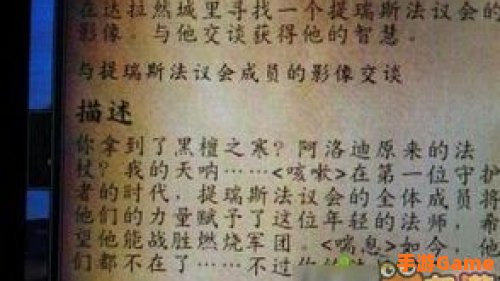 在达拉然城里寻找一个提瑞斯法议会的
影像。与他交谈获得他的智慧。
与提瑞斯法议会成员的影像交谈
描述
你拿到了黑檀之寒？阿洛迪原来的法
杖？我的天呐……<咳嗽>在第一位守护
者的时代，提瑞斯法议会的全体成员将
他们的力量赋予了这位年轻的法师，希
望他能战胜燃烧军团。<喘息>如今，他
们都不在了……不过你的法
手游Game